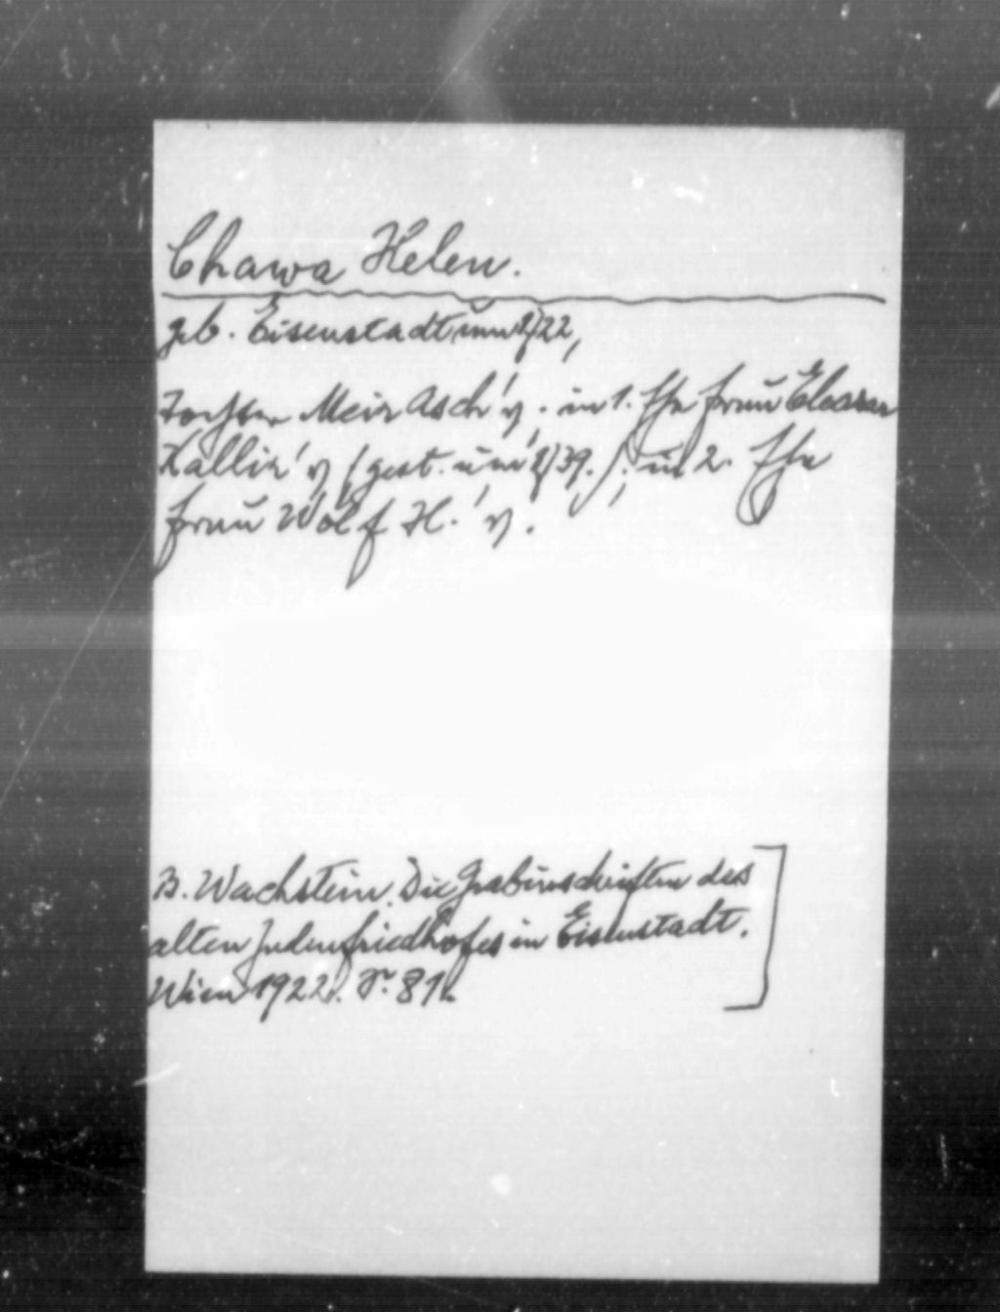 Chawa Helen.
geb. Eisenstadt um
Tochter Meir Asch' v. in 1. Ehe Frau Eleasar
Kallir' v (gest. um 39.), in 2. Ehe
Frau Wolf H.' v.
B. Wachstein. Die Grabinschriften des
alten Judenfriedhofes in Eisenstadt.
Wien 1922. S. 81.